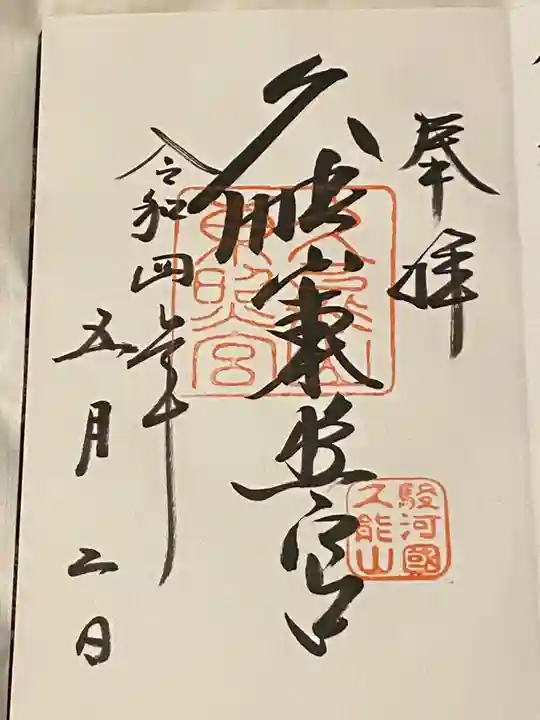 奉拝
久能山東照宮
久能山
東照宮
駿河國
久能山
令和四年
五月二日